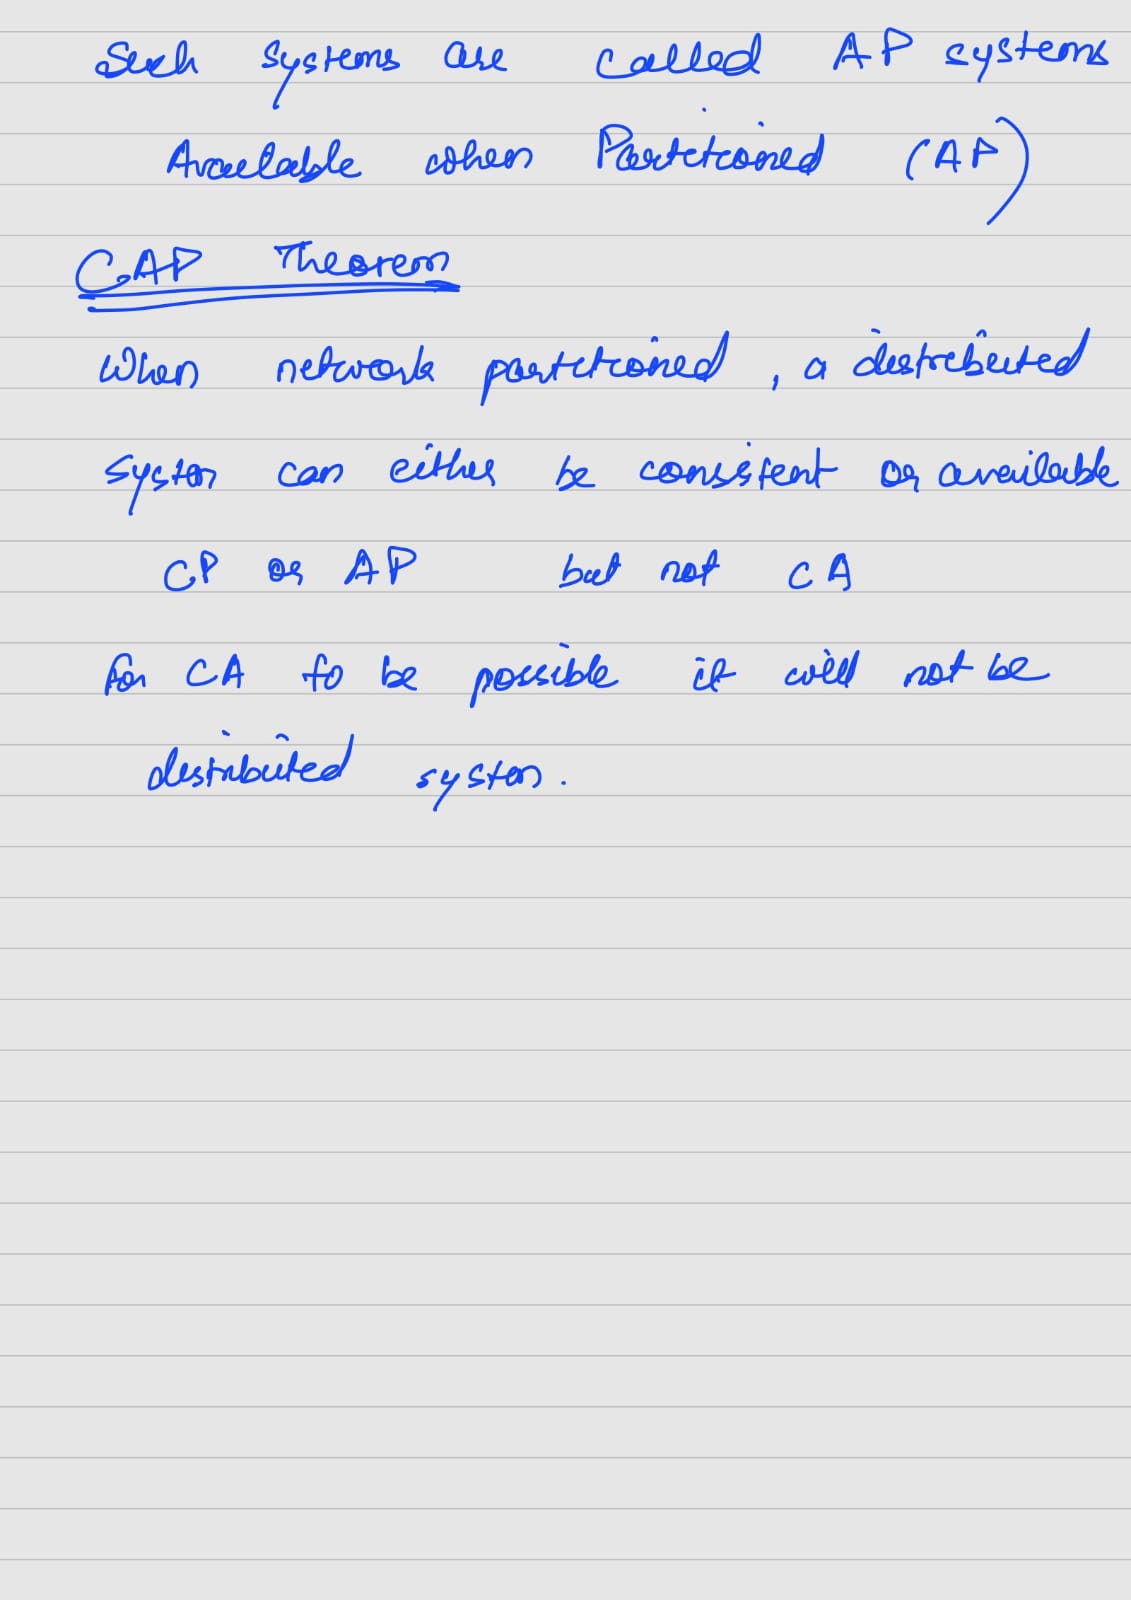 Such systems are called AP systems
Available when Partitioned (AP)
CAP Theorem
When network partitioned, a distributed
system can either be consistent or available
CP or AP but not CA
for CA to be possible it will not be
distributed system.